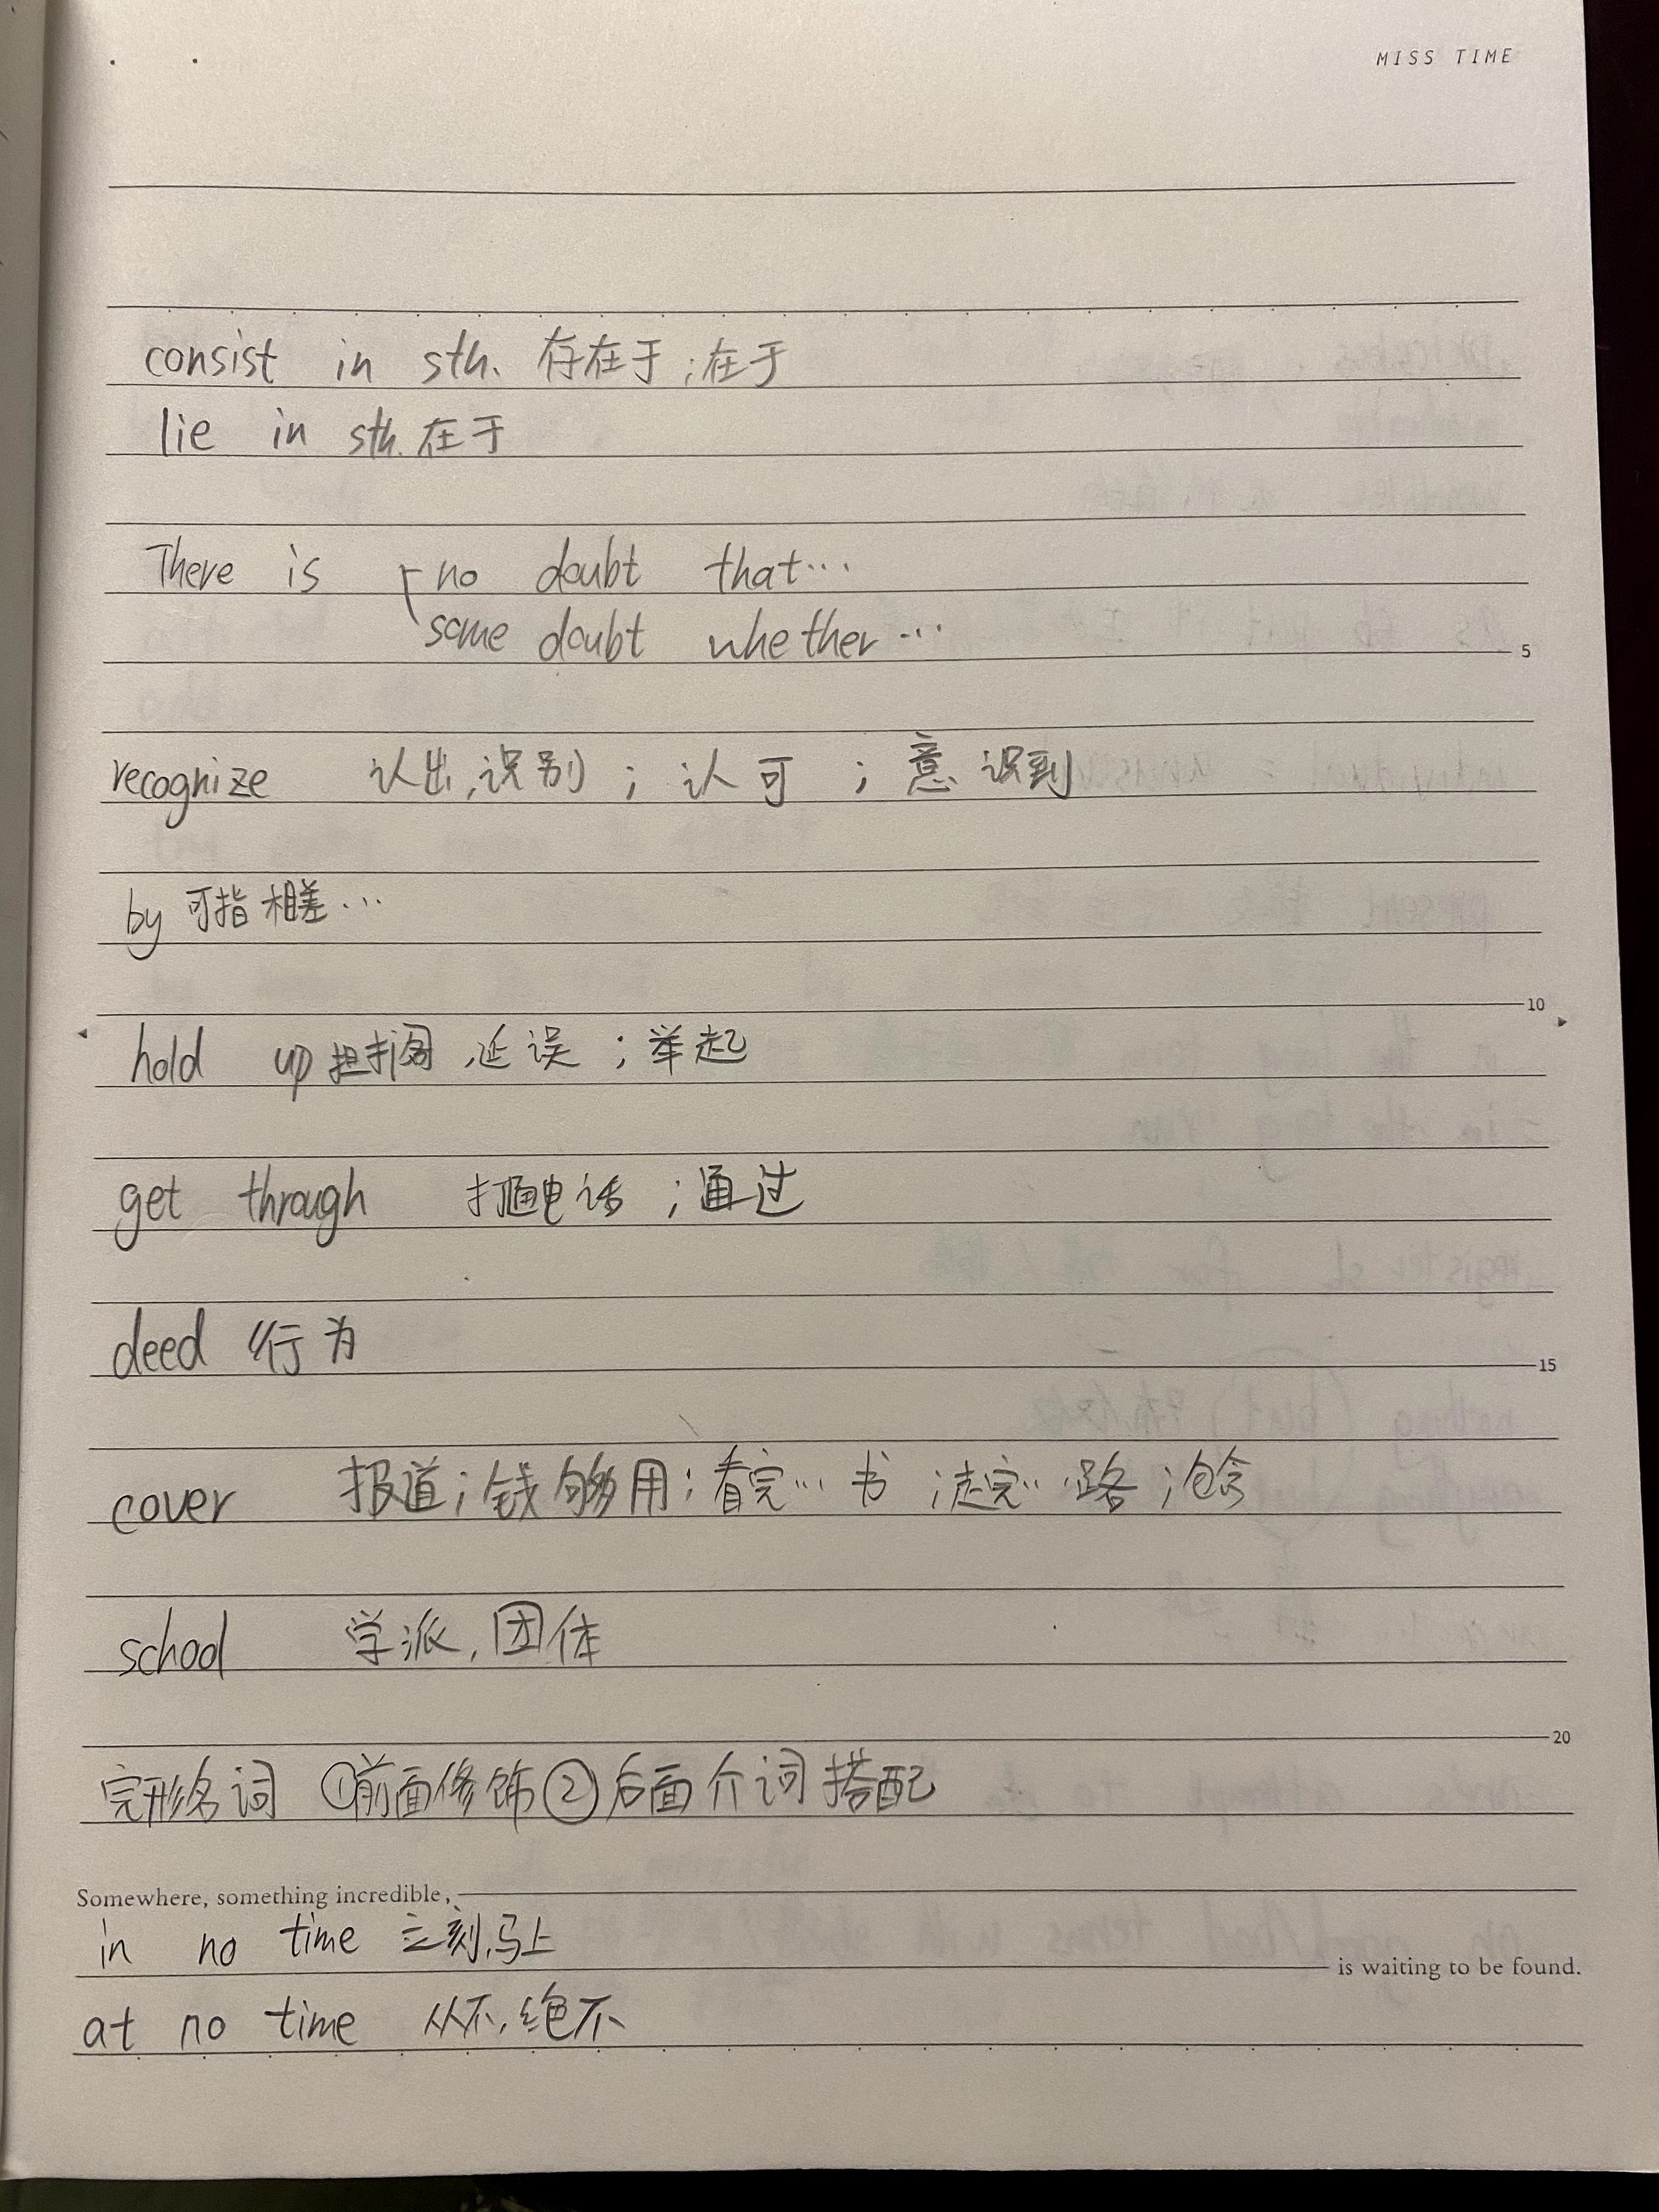 MISS TIME
consist in sth. 存在于;在于
lie in sth.在于
There is { no doubt that…
some doubt whether…
5
recognize 认出,识别；认可；意识到
by 可指相差…
10
hold up 耽搁,延误；举起
get through 打通电话；通过
deed 行为
15
cover 报道；钱够用；看完…书；走完…路；包含
school 学派,团体
完形名词 ①前面修饰②后面介词搭配
20
Somewhere, something incredible,
is waiting to be found.
in no time 立刻,马上
at no time 从不,绝不